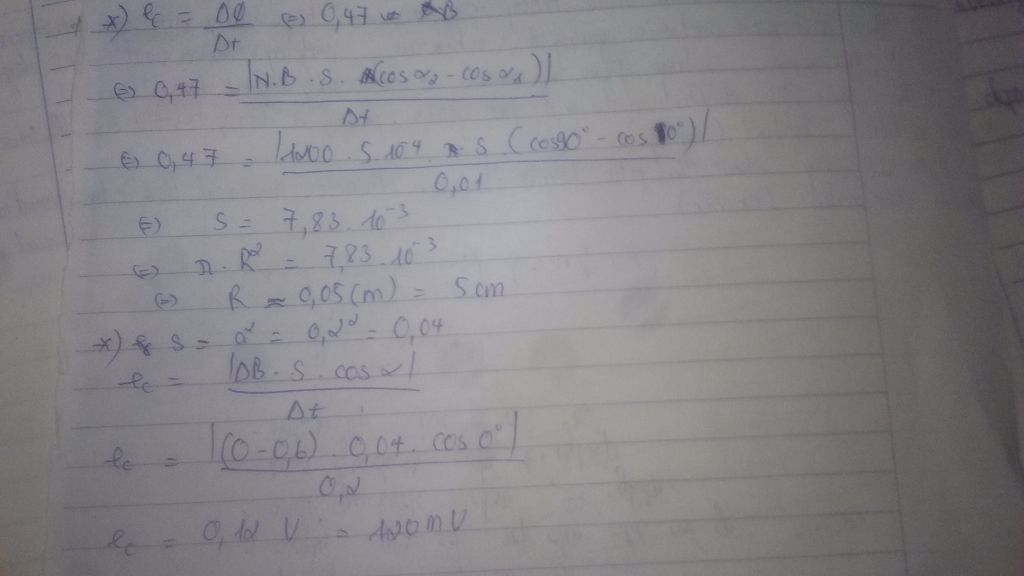 *) ec = ΔΦ / Δt ⇔ 0,47
⇔ 0,47 = |N.B.S.(cosα2 - cosα1)| / Δt
⇔ 0,47 = |1200.5.10⁻⁴.S.(cos90° - cos0°)| / 0,01
⇔ S = 7,83.10⁻³
⇔ π.R² = 7,83.10⁻³
⇔ R ≈ 0,05(m) = 5cm
*) S = a² = 0,2² = 0,04
ec = |ΔB.S.cosα| / Δt
ec = |(0-0,6).0,04.cos0°| / 0,2
ec = 0,12 V = 120mV